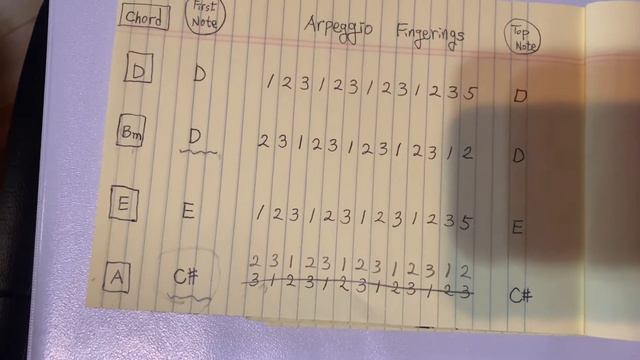 Chord First Note Arpeggio Fingerings Top Note
D D 1 2 3 1 2 3 1 2 3 1 2 3 5 D
Bm D 2 3 1 2 3 1 2 3 1 2 3 1 2 D
E E 1 2 3 1 2 3 1 2 3 1 2 3 5 E
2 3 1 2 3 1 2 3 1 2 3 1 2
A C# 3 1 2 3 1 2 3 1 2 3 1 2 3 C#